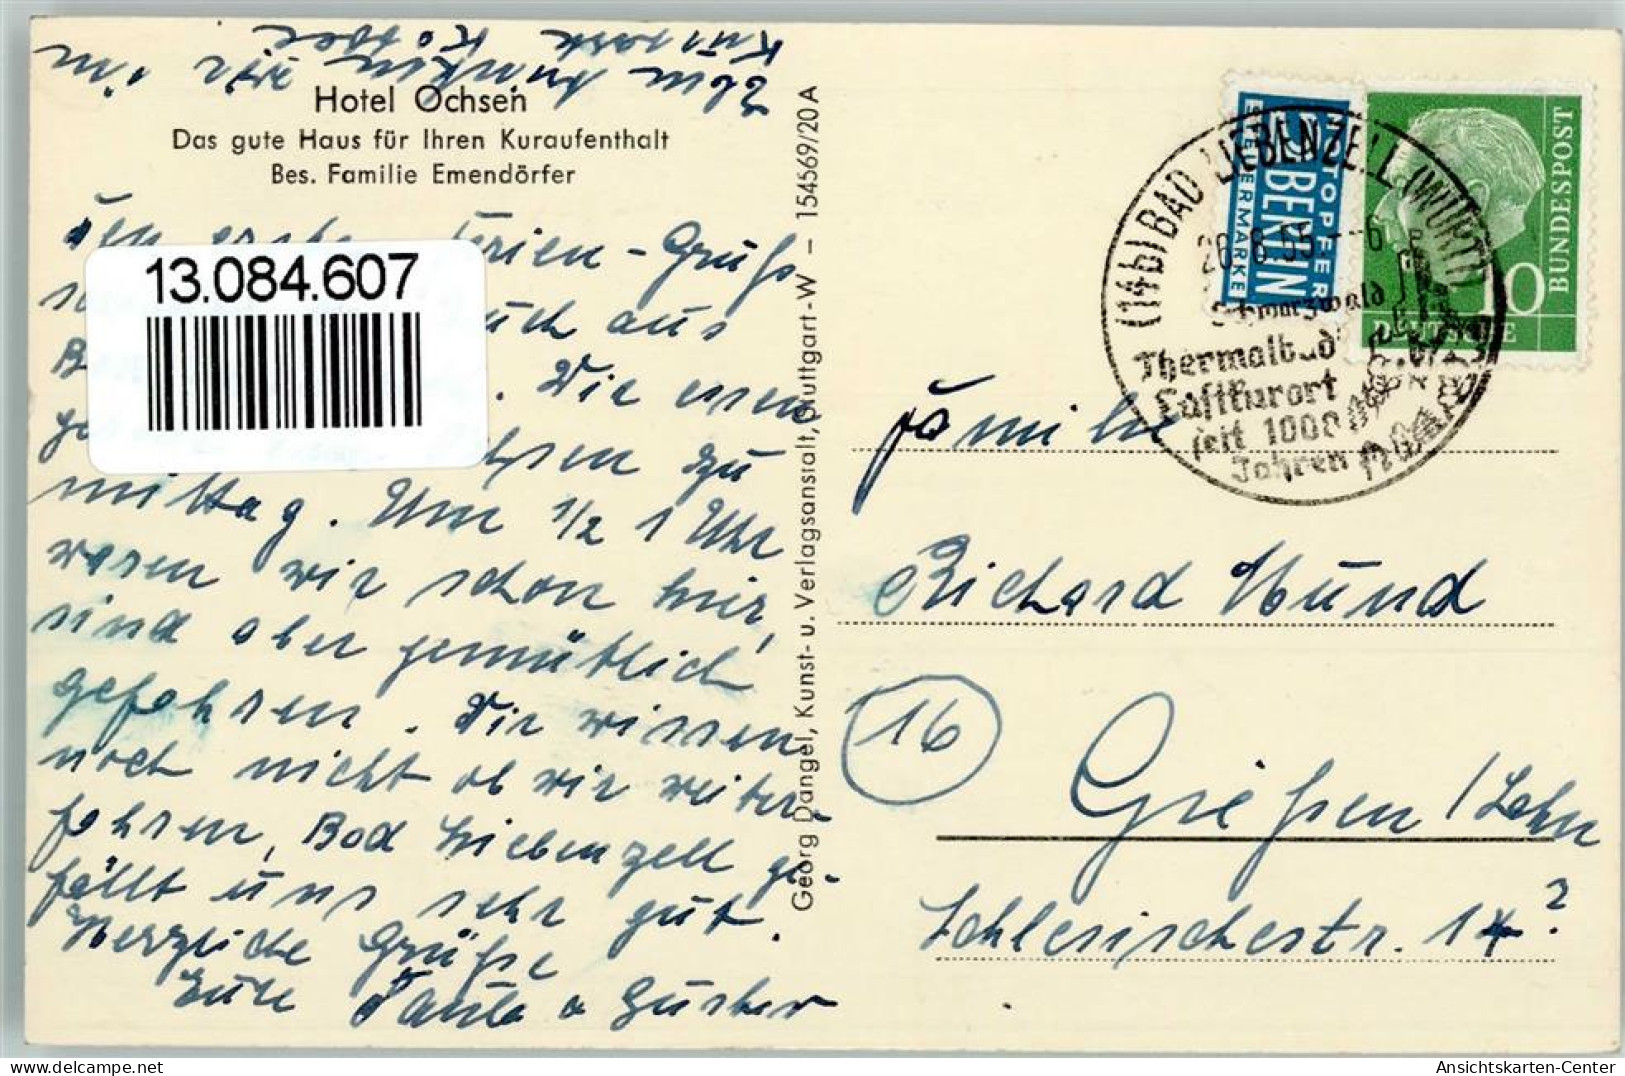 Hotel Ochsen
Das gute Haus für Ihren Kuraufenthalt
Bes. Familie Emendörfer
Den ersten Ferien-Gruß
aus
13.084.607
Wir essen
zu
mittag. Um 1/2 1 Uhr
waren wir schon hier,
sind aber gemütlich
gefahren. Wir wissen
noch nicht ob wir weiter-
fahren, Bad Liebenzell ge-
fällt uns sehr gut.
Herzliche Grüße
Eure Paula u Gustav
Eben trinken wir im
Kurpark Kaffee
Georg Dangel, Kunst- u. Verlagsanstalt, Stuttgart-W - 154569/20A
NOTOPFER
2 BERLIN
STEUERMARKE
DEUTSCHE
BUNDESPOST
10
(14b) BAD LIEBENZELL (WÜRTT)
26.8.55 - 6
Schwarzwald
Thermalbad
Luftkurort
seit 1000
Jahren
Familie
Richard Hund
16
Gießen / Lahn
Schlesischestr. 14?
Ansichtskarten-Center